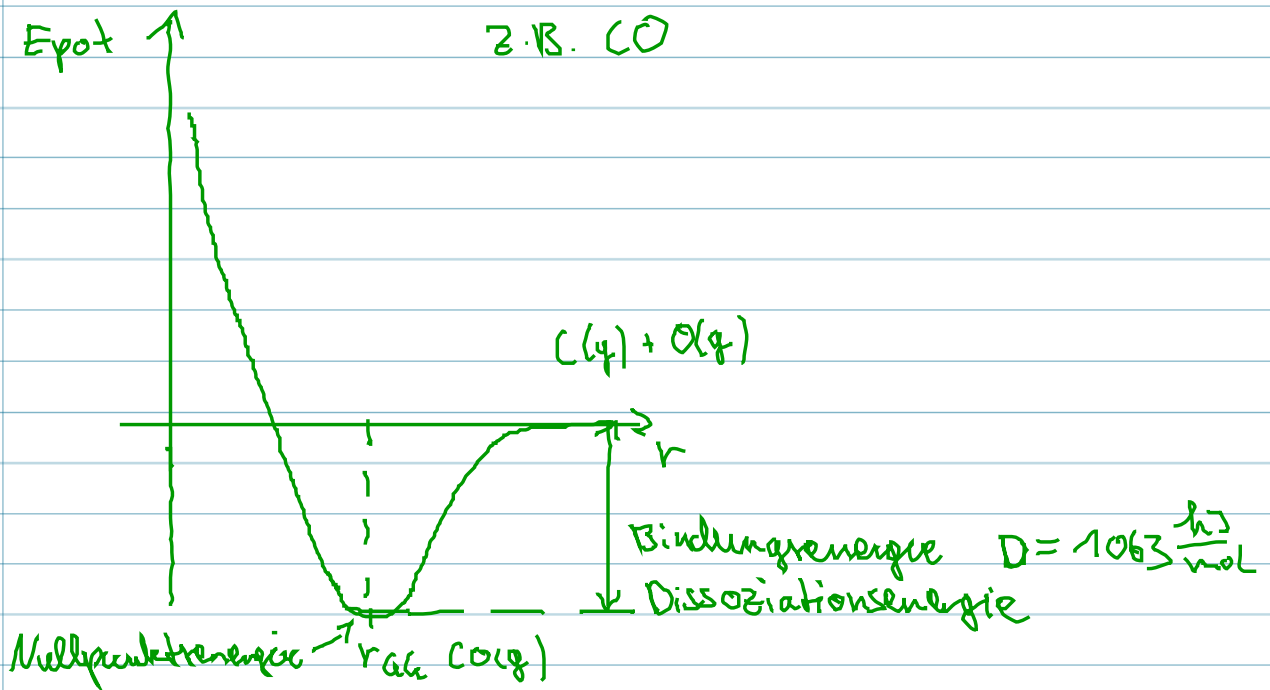 Epot
z.B. CO
C(g) + O(g)
r
Bindungsenergie D = 1063 kJ/mol
Dissoziationsenergie
Nullpunktsenergie
CO(g)